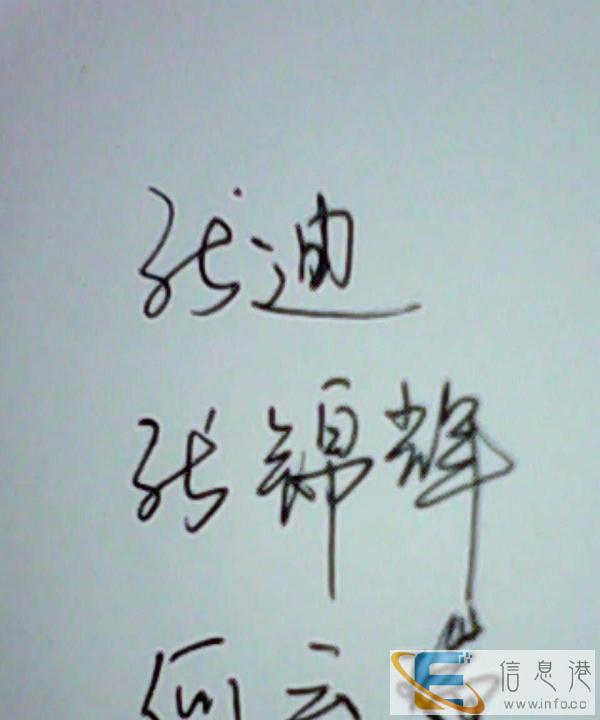 张迪
张锦辉
何云
信息港
www.info.cc